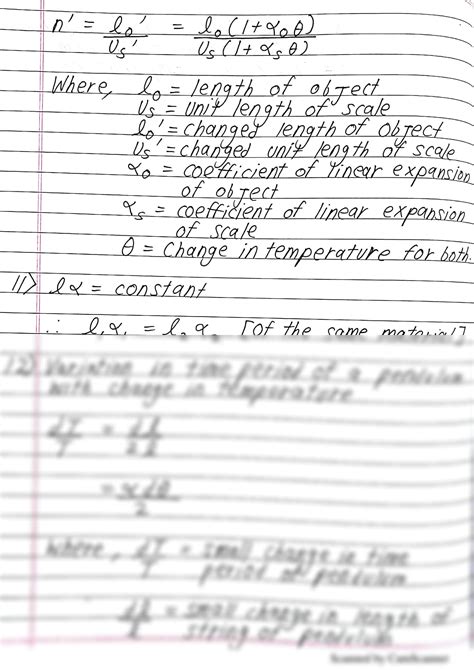 n' = l₀' / Uₛ' = l₀(1+α₀θ) / Uₛ(1+αₛθ)
Where, l₀ = length of object
Uₛ = unit length of scale
l₀' = changed length of object
Uₛ' = changed unit length of scale
α₀ = coefficient of linear expansion
of object
αₛ = coefficient of linear expansion
of scale
θ = Change in temperature for both.
11) lα = constant
∴ l₁α₁ = l₂α₂ [of the same material]
12) Variation in time period of a pendulum
with change in temperature
dT/T = dl/2l
= αdθ/2
Where, dT/T = small change in time
period of pendulum
dl/l = small change in length of
string of pendulum
Scanned by CamScanner